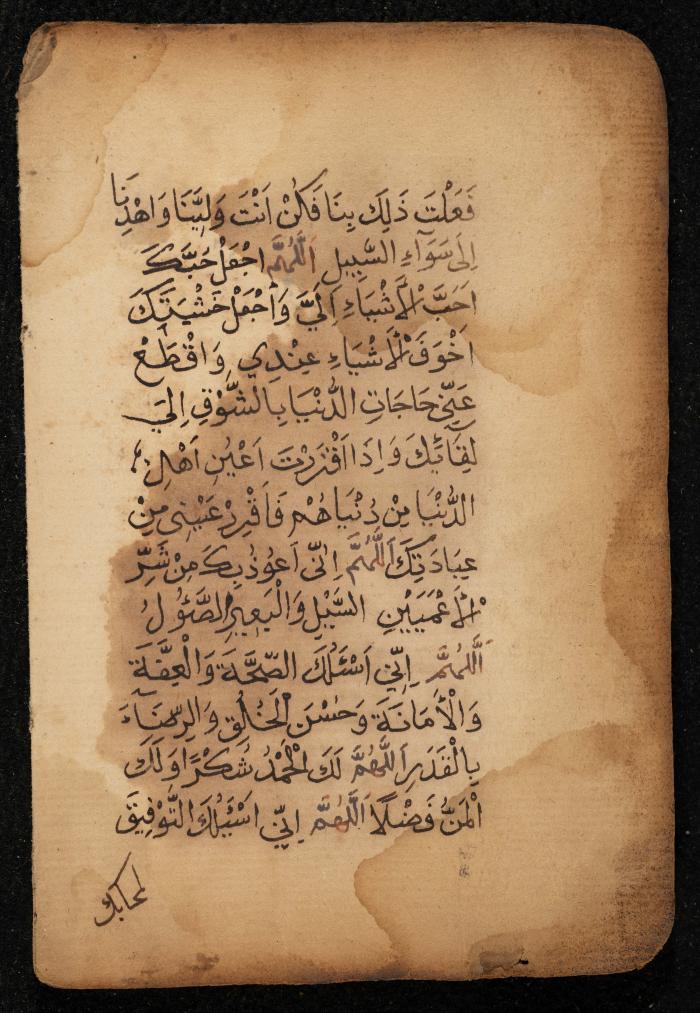 فَعَلْتَ ذَلِكَ بِنَا فَكُنْ اَنْتَ وَلِيَّنَا وَاهْدِنَا
اِلَى سَوَآءِ السَّبِيلِ اَللَّهُمَّ اجْعَلْ حُبَّكَ
اَحَبَّ الْأَشْيَاءِ اِلَيَّ وَاجْعَلْ خَشْيَتَكَ
اَخْوَفَ الْأَشْيَاءِ عِنْدِي وَاقْطَعْ
عَنِّي حَاجَاتِ الدُّنْيَا بِالشَّوْقِ اِلَيَ
لِقَآئِكَ وَاِذَا اَقْرَرْتَ اَعْيُنَ اَهْلِ
الدُّنْيَا مِنْ دُنْيَاهُمْ فَاَقْرِرْ عَيْنِي مِنْ
عِبَادَتِكَ اَللَّهُمَّ اِنِّي اَعُوذُ بِكَ مِنْ شَرِّ
الْأَعْمَيَيْنِ السَّيْلِ وَالْبَعِيرِ الصَّئُولُ
اَللَّهُمَّ اِنِّي اَسْئَلُكَ الصِّحَّةَ وَالْعِفَّةَ
وَالْأَمَانَةَ وَحُسْنَ الْخُلُقِ وَالرِّضَآءَ
بِالْقَدَرِ اَللَّهُمَّ لَكَ الْحَمْدُ شُكْرًا وَلَكَ
الْمَنُّ فَضْلًا اَللَّهُمَّ اِنِّي اَسْئَلُكَ التَّوْفِيقَ
لمحابك